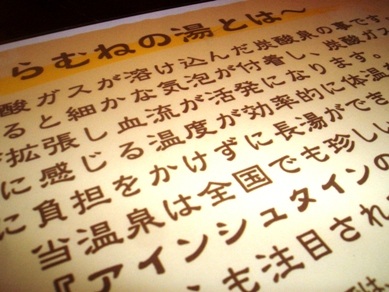 らむねの湯とは～
酸ガスが溶け込んだ炭酸泉の事です
ると細かな気泡が付着し、炭酸ガス
拡張し血流が活発になります。
に感じる温度が効率的に体温
に負担をかけずに長湯ができ
当温泉は全国でも珍しい
『アインシュタインの
も注目され
では